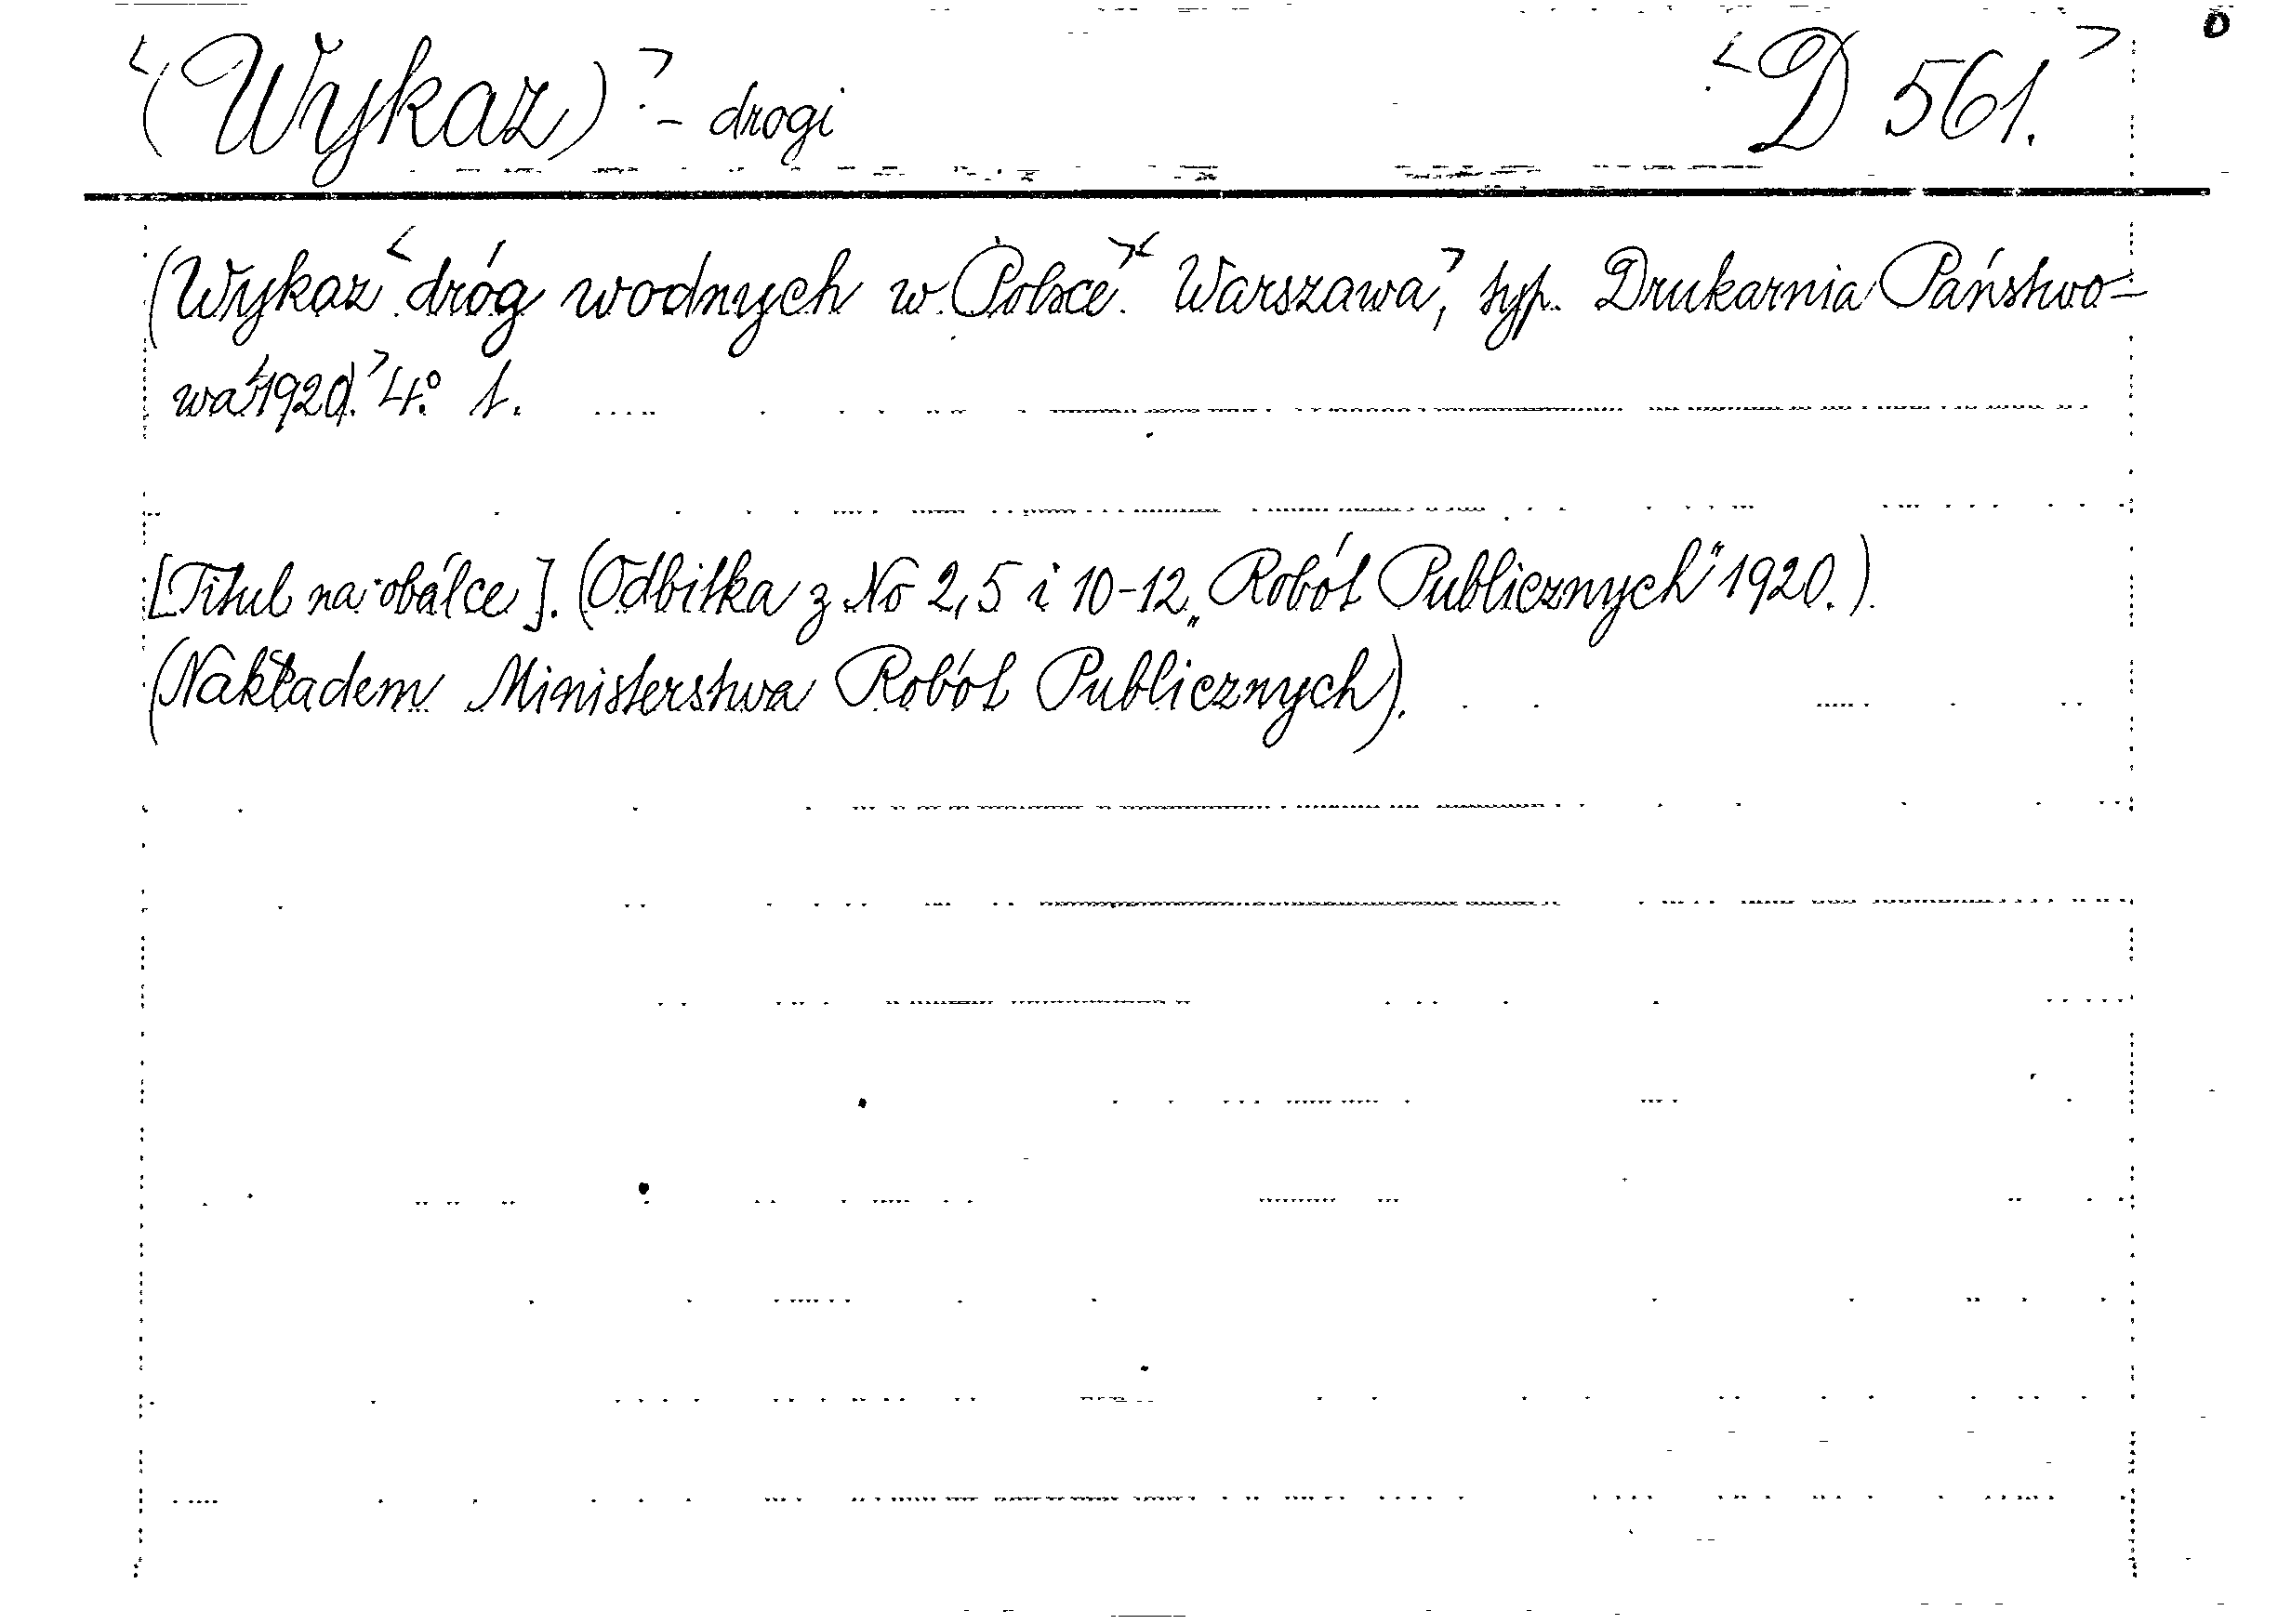 <(Wykaz)> - drogi <D 561.> D
(Wykaz <dróg wodnych w Polsce>. <Warszawa>, typ. Drukarnia Państwo-
wa <1920).> 4.º s.
[Tituł na obálce]. (Odbitka z No 2, 5 i 10-12 „Robót Publicznych" 1920.).
(Nakładem Ministerstwa Robót Publicznych).